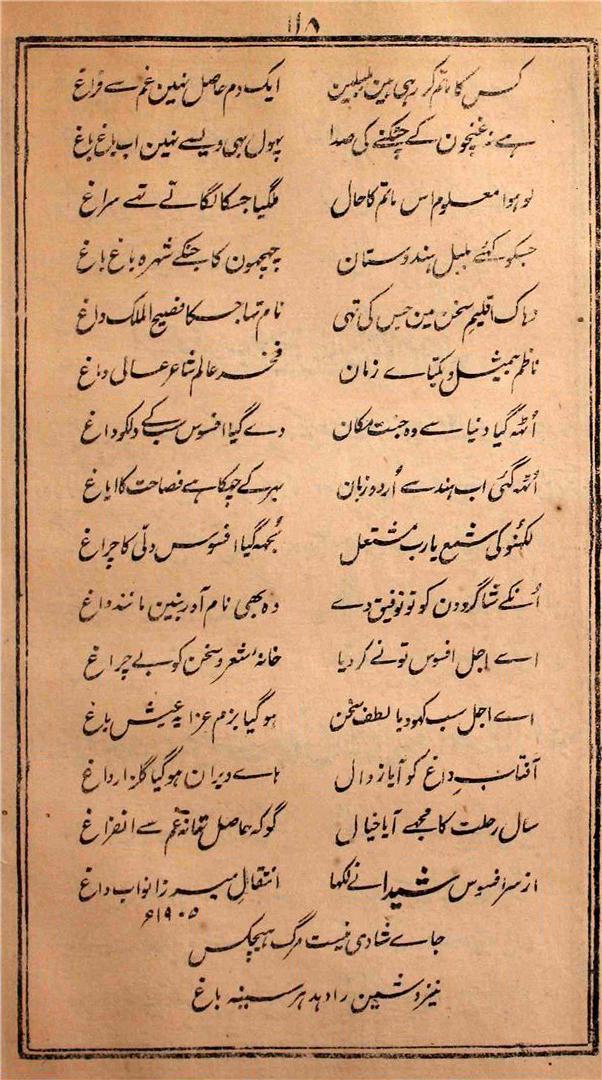 ۱۱۸
کس کا ماتم کر رہی ہین بلبلین ایک دم حاصل نہین غم سے فراغ
ہے نہ غنچون کے چٹکنے کی صدا پہول بہی ویسے نہین اب باغ باغ
لو ہوا معلوم اس ماتم کا حال ملگیا جسکا لگاتے تہے سراغ
جسکو کہئے بلبل ہندوستان چہچہون کا جنکے شہرہ باغ باغ
دہاک اقلیم سخن مین جس کی تہی نام تہا جسکا فصیح الملک داغ
ناظم بیمثل و یکتاے زمان فخر عالم شاعر عالی دماغ
اُٹہہ گیا دنیا سے وہ جنت مکان دے گیا افسوس سب کے دلکو داغ
اُٹہہ گئی اب ہند سے اُردو زبان بہر کے چہلکا ہے فصاحت کا ایاغ
لکہنؤ کی شمع یارب مشتعل بُجہہ گیا افسوس دلّی کا چراغ
اُنکے شاگردون کو تو توفیق دے وہ بھی نام آور بنین مانند داغ
اے اجل افسوس تونے کر دیا خانۂ شعر و سخن کو بے چراغ
اے اجل سب کہو دیا لطف سخن ہو گیا بزم عزا یہ عیش باغ
آفتاب داغ کو آیا زوال ہاے ویران ہو گیا گلزار داغ
سال رحلت کا مجہے آیا خیال گو کہ حاصل تہا نہ غم سے انفراغ
از سر افسوس شیدا نے لکہا انتقال میرزا نواب داغ
۱۹۰۵ء
جاے شادی نیست مرگ ہیچکس
نیز دشمن را دہد ہر سینہ داغ